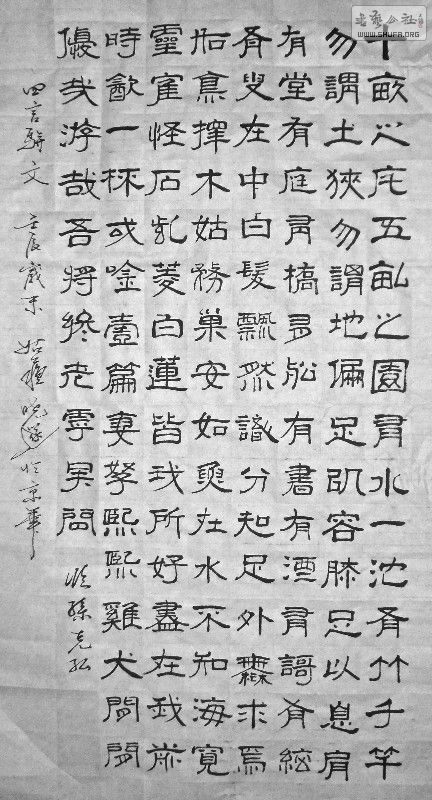 十畝之宅五畝之園有水一池有竹千竿
勿謂土狹勿謂地偏足以容膝足以息肩
有堂有庭有橋有舩有書有酒有謌有絃
有叟在中白髮飄然識分知足外無求焉
如鳥擇木姑務巢安如魚在水不知海寬
靈隺怪石紫菱白蓮皆我所好盡在我前
時飲一杯或唫壹篇妻孥熙熙雞犬閒閒
優哉游哉吾將終老乎其間
臨孫克弘
四言駢文 壬辰歲末 於京華
书艺公社
WWW.SHUFA.ORG